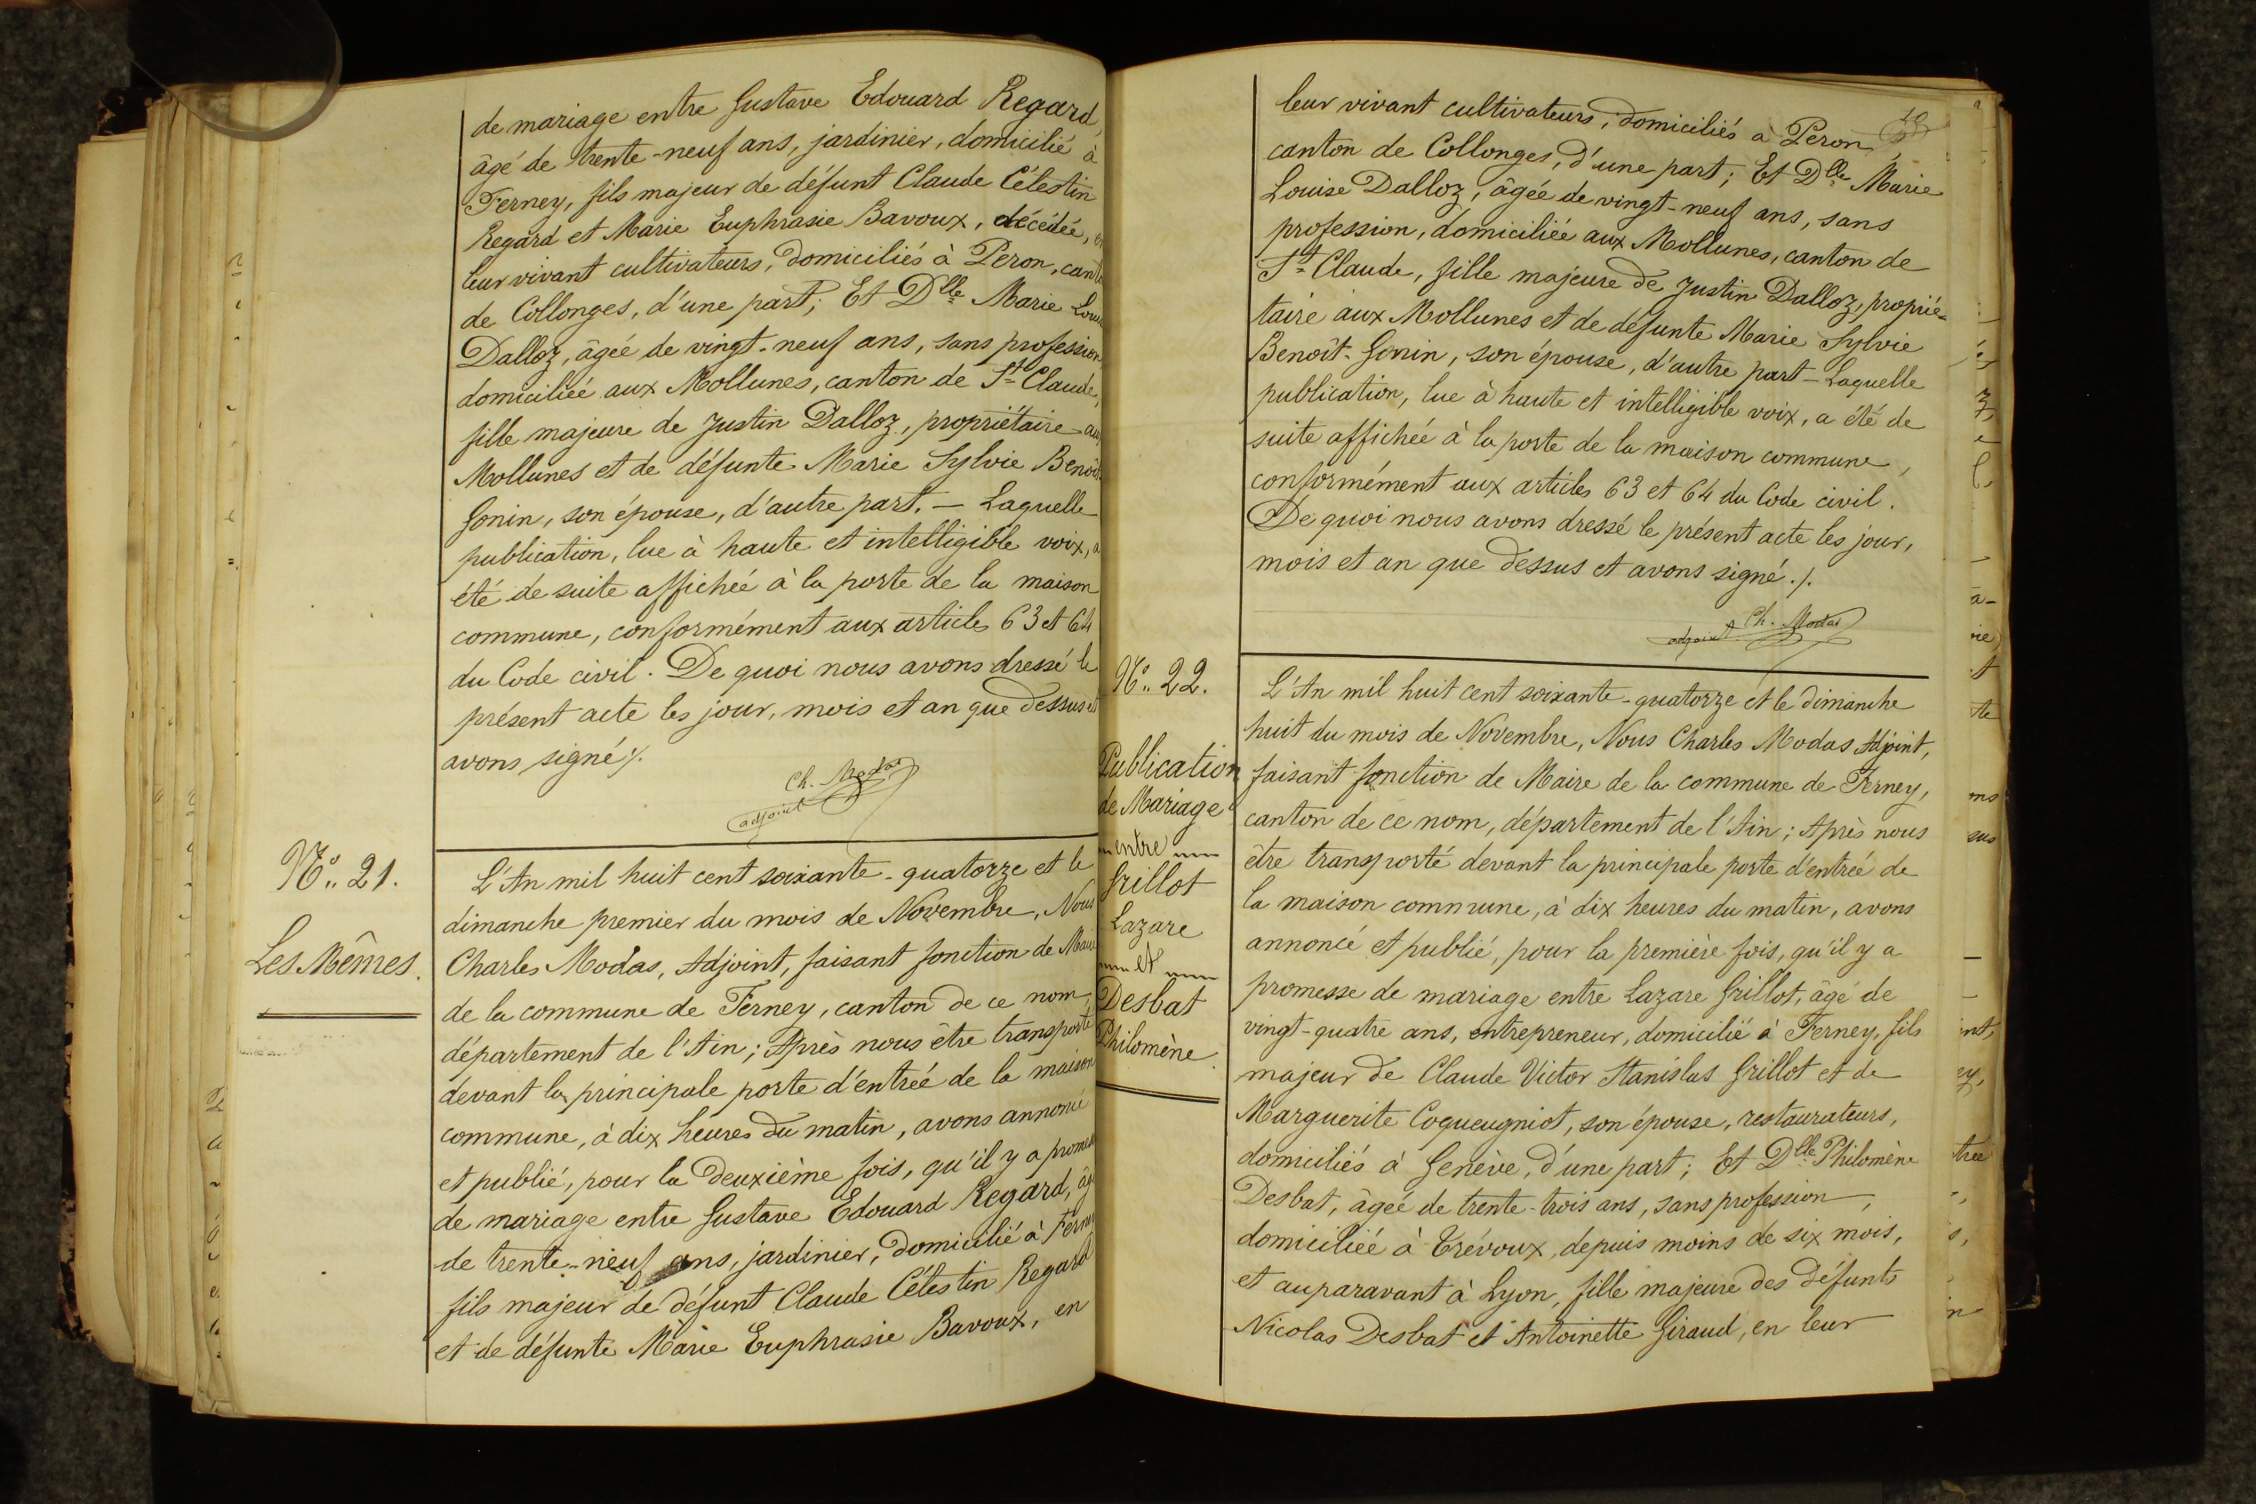 de mariage entre Gustave Edouard Regard,
âgé de trente-neuf ans, jardinier, domicilié à
Ferney, fils majeur de défunt Claude Célestin
Regard et Marie Euphrasie Bavoux, décédée, en
leur vivant cultivateurs, domiciliés à Peron, cant
de Collonges, d'une part; Et Dlle Marie Loui
Dalloz, âgée de vingt-neuf ans, sans profession
domiciliée aux Mollunes, canton de St Claude,
fille majeure de Justin Dalloz, propriétaire au
Mollunes et de défunte Marie Sylvie Benoît
Gonin, son épouse, d'autre part. — Laquelle
publication, lue à haute et intelligible voix, a
été de suite affichée à la porte de la maison
commune, conformément aux articles 63 et 64
du Code civil. De quoi nous avons dressé le
présent acte les jour, mois et an que dessus et
avons signé ./.
Ch. Modas
adjoint
No. 21.
Les Mêmes.
L'An mil huit cent soixante-quatorze et le
dimanche premier du mois de Novembre, Nous
Charles Modas, Adjoint, faisant fonction de Maire
de la commune de Ferney, canton de ce nom,
département de l'Ain; Après nous être transporté
devant la principale porte d'entrée de la maison
commune, à dix heures du matin, avons annoncé
et publié, pour la deuxième fois, qu'il y a promesse
de mariage entre Gustave Edouard Regard, âgé
de trente-neuf ans, jardinier, domicilié à Ferney
fils majeur de défunt Claude Célestin Regard
et de défunte Marie Euphrasie Bavoux, en
leur vivant cultivateurs, domiciliés à Peron,
canton de Collonges, d'une part; Et Dlle Marie
Louise Dalloz, âgée de vingt-neuf ans, sans
profession, domiciliée aux Mollunes, canton de
St Claude, fille majeure de Justin Dalloz, proprié-
taire aux Mollunes et de défunte Marie Sylvie
Benoît-Gonin, son épouse, d'autre part — Laquelle
publication, lue à haute et intelligible voix, a été de
suite affichée à la porte de la maison commune,
conformément aux articles 63 et 64 du Code civil.
De quoi nous avons dressé le présent acte les jour,
mois et an que dessus et avons signé ./.
Ch. Modas
adjoint
No. 22.
Publication
de Mariage
entre
Grillot
Lazare
et
Desbat
Philomène.
L'An mil huit cent soixante-quatorze et le dimanche
huit du mois de Novembre, Nous Charles Modas Adjoint,
faisant fonction de Maire de la commune de Ferney,
canton de ce nom, département de l'Ain; Après nous
être transporté devant la principale porte d'entrée de
la maison commune, à dix heures du matin, avons
annoncé et publié, pour la première fois, qu'il y a
promesse de mariage entre Lazare Grillot, âgé de
vingt-quatre ans, entrepreneur, domicilié à Ferney, fils
majeur de Claude Victor Stanislas Grillot et de
Marguerite Coqueugniot, son épouse, restaurateurs,
domiciliés à Genève, d'une part; Et Dlle Philomène
Desbat, âgée de trente-trois ans, sans profession,
domiciliée à Trévoux, depuis moins de six mois,
et auparavant à Lyon, fille majeure des défunts
Nicolas Desbat et Antoinette Giraud, en leur